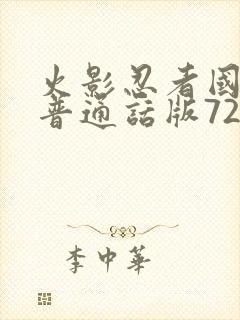 火影忍者國
普通話版72
李中華